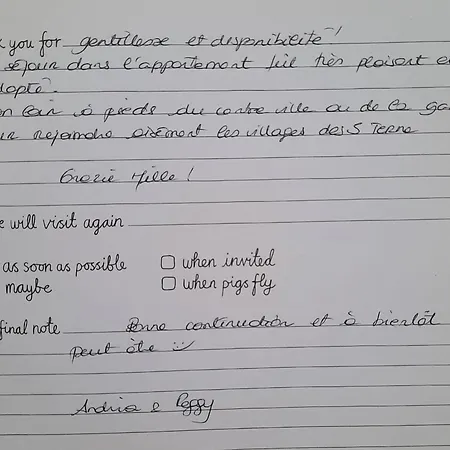 you for gentillesse et disponibilité !
séjour dans l'appartement fût très plaisant e
adapté.
loin à pieds du centre ville ou de la ga
rejoindre aisément les villages des 5 Terre
Grazie Mille !
will visit again
as soon as possible ☐ when invited
maybe ☐ when pigs fly
final note Bonne continuation et à bientôt
peut être
Andria e Peggy